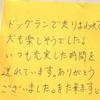 ドッグランで走りまわれて
犬も楽しそうでした。
いつも充実した時間を
送れています。ありがとう
ございました。また来ます。